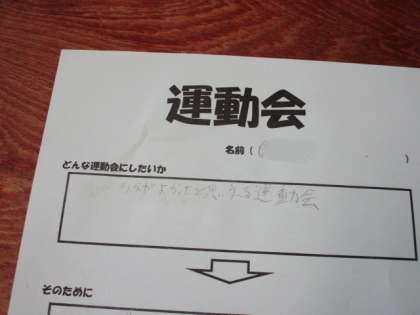 運動会
名前 ( )
どんな運動会にしたいか
よかったと思える運動会
そのために